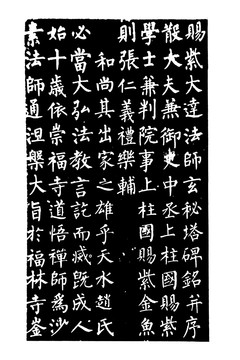 賜紫大達法師玄秘塔碑銘并序
散大夫兼御史中丞上柱國賜紫
學士兼判院事上柱國賜紫金魚
則張仁義禮樂輔
和尚其出家之雄乎天水趙氏
必當大弘法教言訖而滅既成人
始十歲依崇福寺道悟禪師為沙
素法師通涅槃大旨於福林寺崟